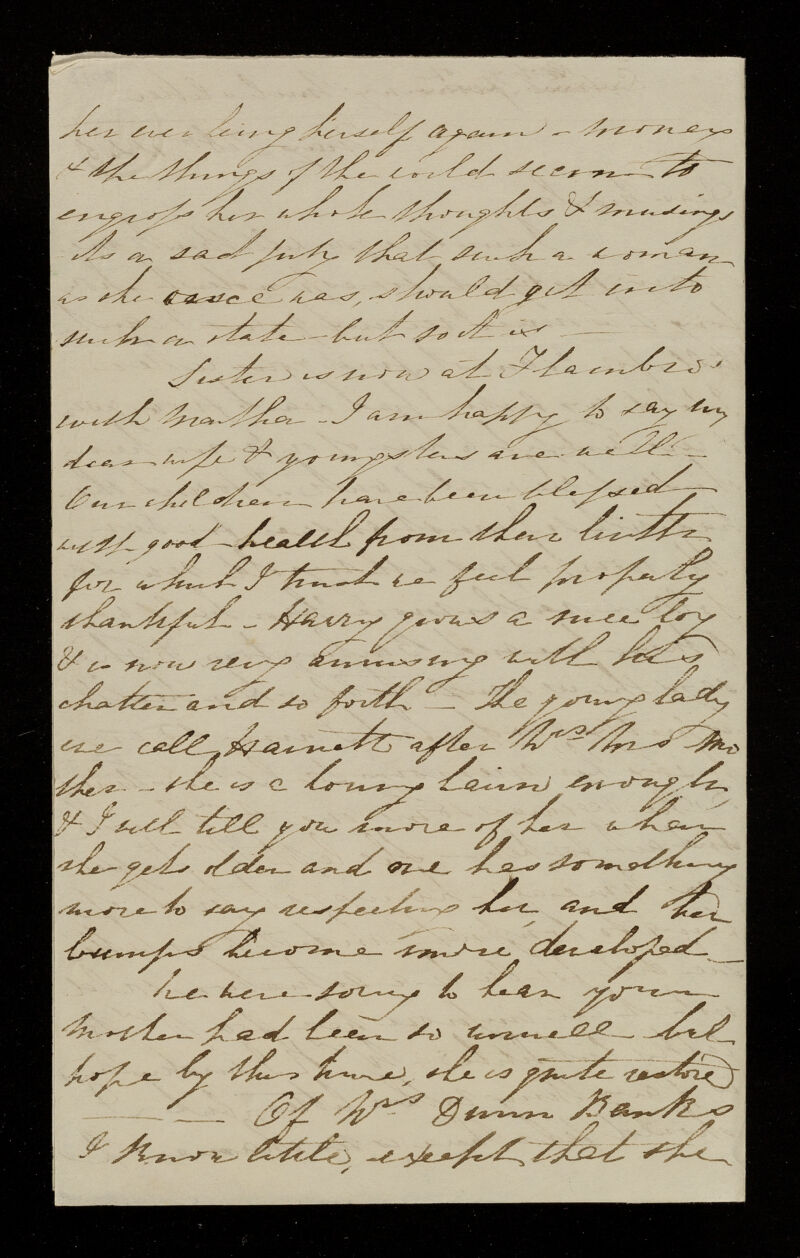 her ever being herself again - money
& the things of the world seem to
engross her whole thoughts & musings
its a sad pity that such a woman
as she once was, should get into
such a state - but so it is -
Sister is now at Flambro'
with Martha - I am happy to say my
dear wife & youngsters are well -
Our children have been blessed
with good health from their birth
for which I trust we feel properly
thankful - Harry grows a nice boy
& is now very amusing with his
chatter and so forth - The young lady
we call Harriett after Mrs
ther - she is a bonny bairn enough,
& I will tell you more of her when
she gets older and one has something
more to say respecting her, and her
bumps become more developed -
We were sorry to hear your
Mother had been so unwell but
hope by this time, she is quite restored
- - Of Mrs Dunn Banks
I know little, except that she